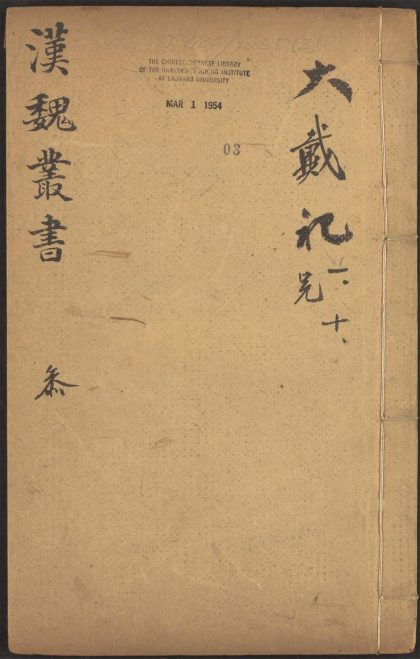 大戴礼
一、十、
THE CHINESE-JAPANESE LIBRARY
OF THE HARVARD-YENCHING INSTITUTE
AT HARVARD UNIVERSITY
MAR 1 1954
03
漢魏叢書
叅